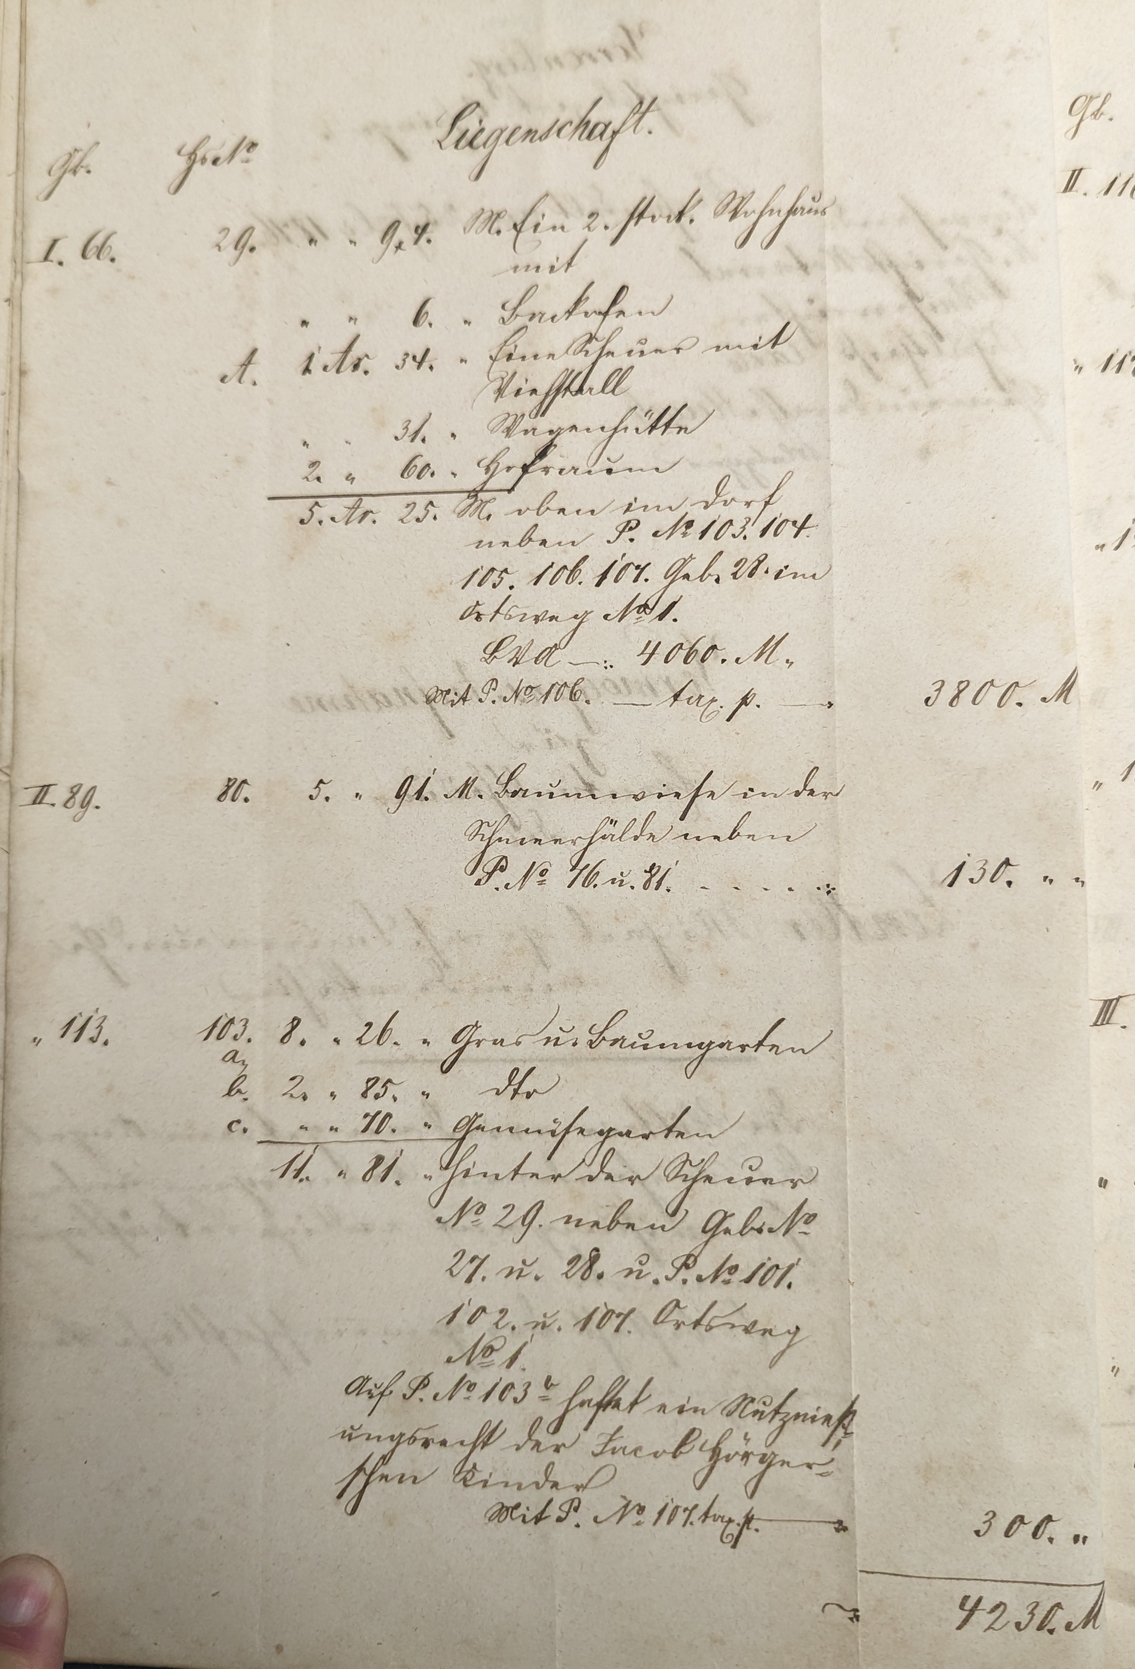 Liegenschaft.
Gb. Hs. No
I. 66. 29. " " 94. M. Ein 2. stock. Wohnhaus
mit
" " 6. " Backofen
A. 1 Ar. 34. " Eine Scheuer mit
Viehstall
" " 31. " Wagenhütte
2. " 60. " Hofraum
5. Ar. 25. M. oben im Dorf
neben P. No 103. 104.
105. 106. 107. Geb. 28. im
Ortsweg No 1.
BVA —: 4060. M.
Mit P. No 106. — tax. p. — 3800. M
II. 89. 80. 5. " 91. M. Baumwiese in der
Schneerhälde neben
P. No 76. u. 81. - - - - - 130. " "
" 113. 103. 8. " 26. " Gras u. Baumgarten
a.
b. 2. " 85. " dto
c. " " 70. " Gemüsegarten
11. " 81. " hinter der Scheuer
No 29. neben Geb. No
27. u. 28. u. P. No 101.
102. u. 107. Ortsweg
No 1.
Auf P. No 103 b haftet ein Nutznieß-
ungsrecht der Jacob Hörger-
schen Kinder
Mit P. No 107. tax. p. — 300. "
4230. M
Gb.
II. 11
" 11
" 1
" 1
III.
"
"